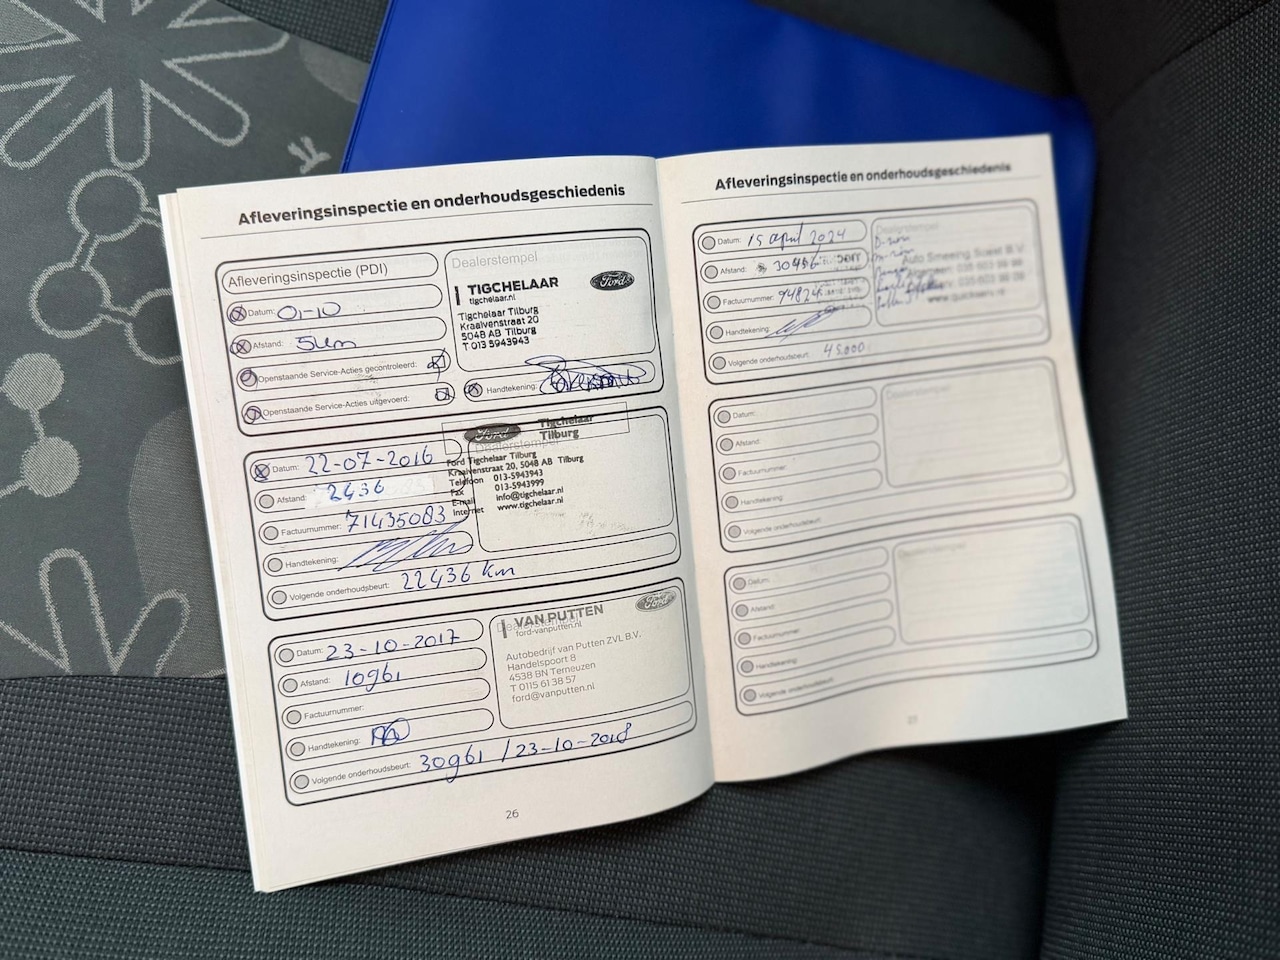 Afleveringsinspectie en onderhoudsgeschiedenis
Afleveringsinspectie (PDI)
Datum: 01-10
Afstand: 5km
Openstaande Service-Acties gecontroleerd:
Openstaande Service-Acties uitgevoerd:
Dealerstempel
TIGCHELAAR
tigchelaar.nl
Tigchelaar Tilburg
Kraaivenstraat 20
5048 AB Tilburg
T 013 5943943
Ford
Handtekening:
Datum: 22-07-2016
Afstand: 2436
Factuurnummer: 71435083
Handtekening:
Volgende onderhoudsbeurt: 22436 km
Dealerstempel
Ford
Tigchelaar
Tilburg
Ford Tigchelaar Tilburg
Kraaivenstraat 20, 5048 AB Tilburg
Telefoon 013-5943943
Fax 013-5943999
E-mail info@tigchelaar.nl
Internet www.tigchelaar.nl
Datum: 23-10-2017
Afstand: 10961
Factuurnummer:
Handtekening:
Volgende onderhoudsbeurt: 30961 / 23-10-2018
Dealerstempel
VAN PUTTEN
ford-vanputten.nl
Ford
Autobedrijf van Putten ZVL B.V.
Handelspoort 8
4538 BN Terneuzen
T 0115 61 38 57
ford@vanputten.nl
26
Afleveringsinspectie en onderhoudsgeschiedenis
Datum: 15 april 2024
Afstand: 30456
Factuurnummer: 94824
Handtekening:
Volgende onderhoudsbeurt: 45.000
Dealerstempel
Auto Smeeing Soest B.V.
Datum:
Afstand:
Factuurnummer:
Handtekening:
Volgende onderhoudsbeurt:
Dealerstempel
Datum:
Afstand:
Factuurnummer:
Handtekening:
Volgende onderhoudsbeurt:
Dealerstempel